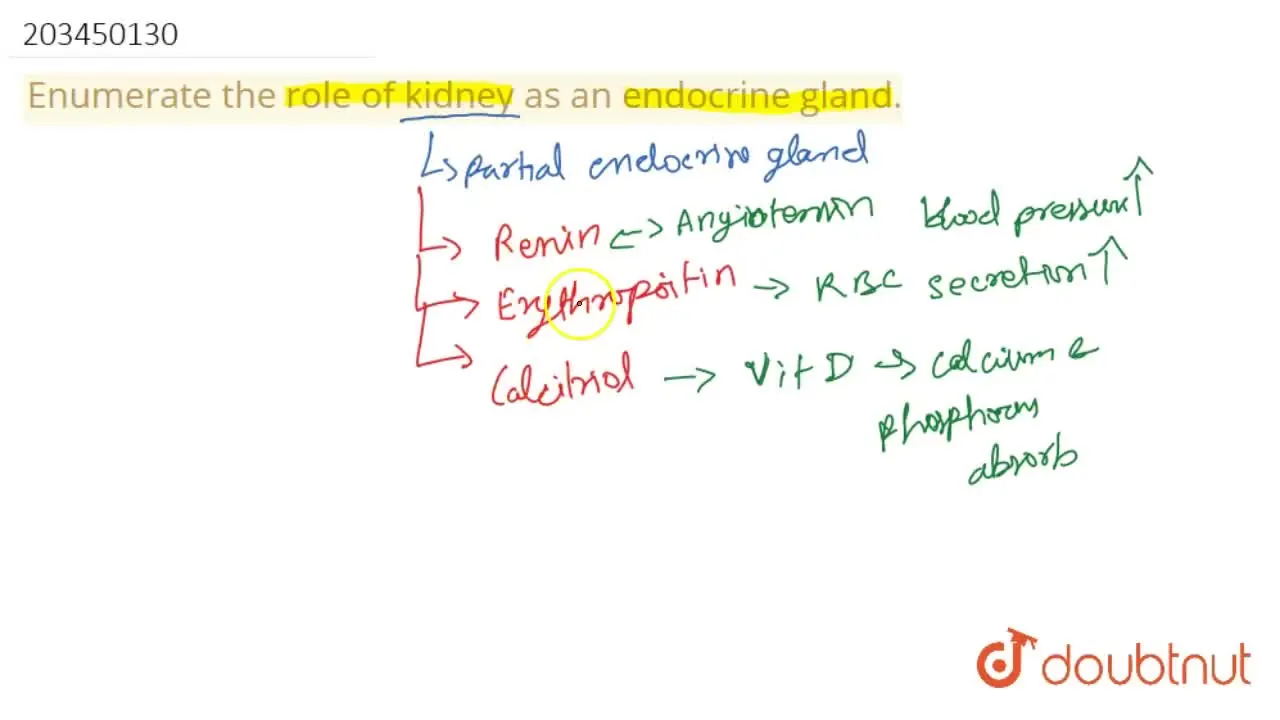 203450130
Enumerate the role of kidney as an endocrine gland.
↳ partial endocrine gland
→ Renin ↔ Angiotensin blood pressure ↑
→ Erythropoitin → RBC secretion ↑
→ Calcitriol → Vit D → calcium &
phosphorus
absorb
doubtnut